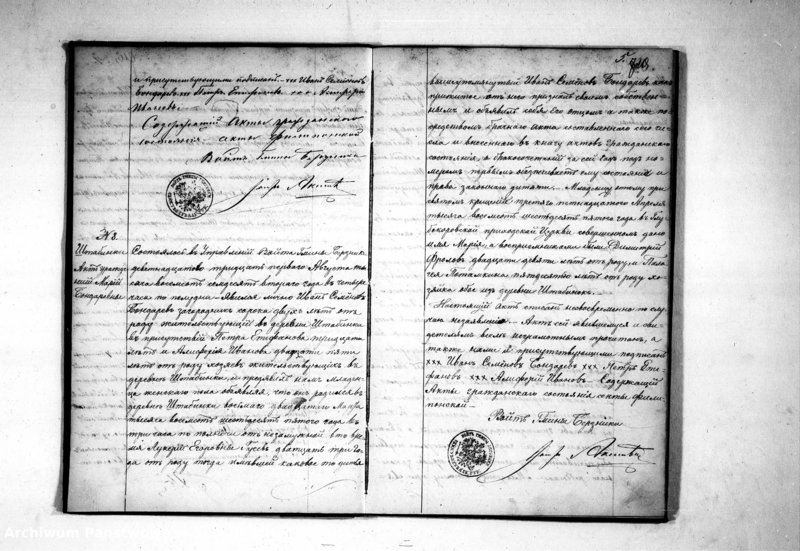 и присутствующими подписали. xxx Иванъ Семёновъ
Бондаревъ xxx Петръ Епифановъ xxx Алиферій
Ивановъ.
Содержащій Акты гражданскаго
состоянія секты филиппонской
Войтъ Гмины Бержники
№ 3.
Штабинки
Актъ рожде
нія Маріи
Бондаревой
Состоялось въ Управленіи Войта Гмины Бержники
девятнадцатаго тридцать перваго Августа ты
сяча восемьсотъ семдесятъ втораго года въ четыре
часа по полудни. Явился лично Иванъ Семёновъ
Бондаревъ загородникъ сорока двухъ лѣтъ отъ
роду жительствующій въ деревни Штабинки
въ присутствіи Петра Епифанова тридцати
лѣтъ и Алиферія Иванова двадцати пяти
лѣтъ отъ роду хозяевъ жительствующихъ въ
деревни Штабинки, и предъявилъ намъ Младен
ца женскаго пола объявляя что онъ родился въ
деревни Штабинки восьмаго двадцатаго Марта
тысяча восемьсотъ шестьдесятъ пятого года въ
три часа по полудни отъ незамужной въ то вре
мя Лукеріи Егоровны Гусевъ двадцать три го
да отъ роду тогда имѣвшей каковое то дитя
вышеупомянутый Иванъ Семёновъ Бондаревъ какъ
прижитое отъ него призналъ своимъ собствен
нымъ и объявилъ себя его отцомъ а также по
средствомъ брачнаго акта составленнаго сего чи
сла и внесеннаго въ книгу актовъ гражданскаго
состоянія о бракосочетаніи за сей годъ подъ но
меромъ первымъ обезпечиваетъ ему состояніе и
права законнаго дитяти. Младенцу этому при
святомъ крещеніи третяго пятнадцатаго Апреля
тысяча восемьсотъ шестьдесятъ пятого года въ
приходской Церкви совершенномъ дано
имя Марія, а воспріемниками были Димитрій
Фроловъ двадцати девяти лѣтъ отъ роду, и Пела
гея пятьдесятъ лѣтъ отъ роду хо
зяйка обе изъ деревни Штабинокъ.
Настоящій актъ списанъ несвоевременно по слу
чаю незаявленія. Актъ сей явившемуся и сви
детелямъ всемъ неграмотнымъ прочитанъ, а
также нами и присутствующими подписанъ
xxx Иванъ Семёновъ Бондаревъ xxx Петръ Епи
фановъ xxx Алиферій Ивановъ. Содержащій
Акты гражданскаго состоянія секты филип
понской
Войтъ Гмины Бержники
Archiwum Państwowe